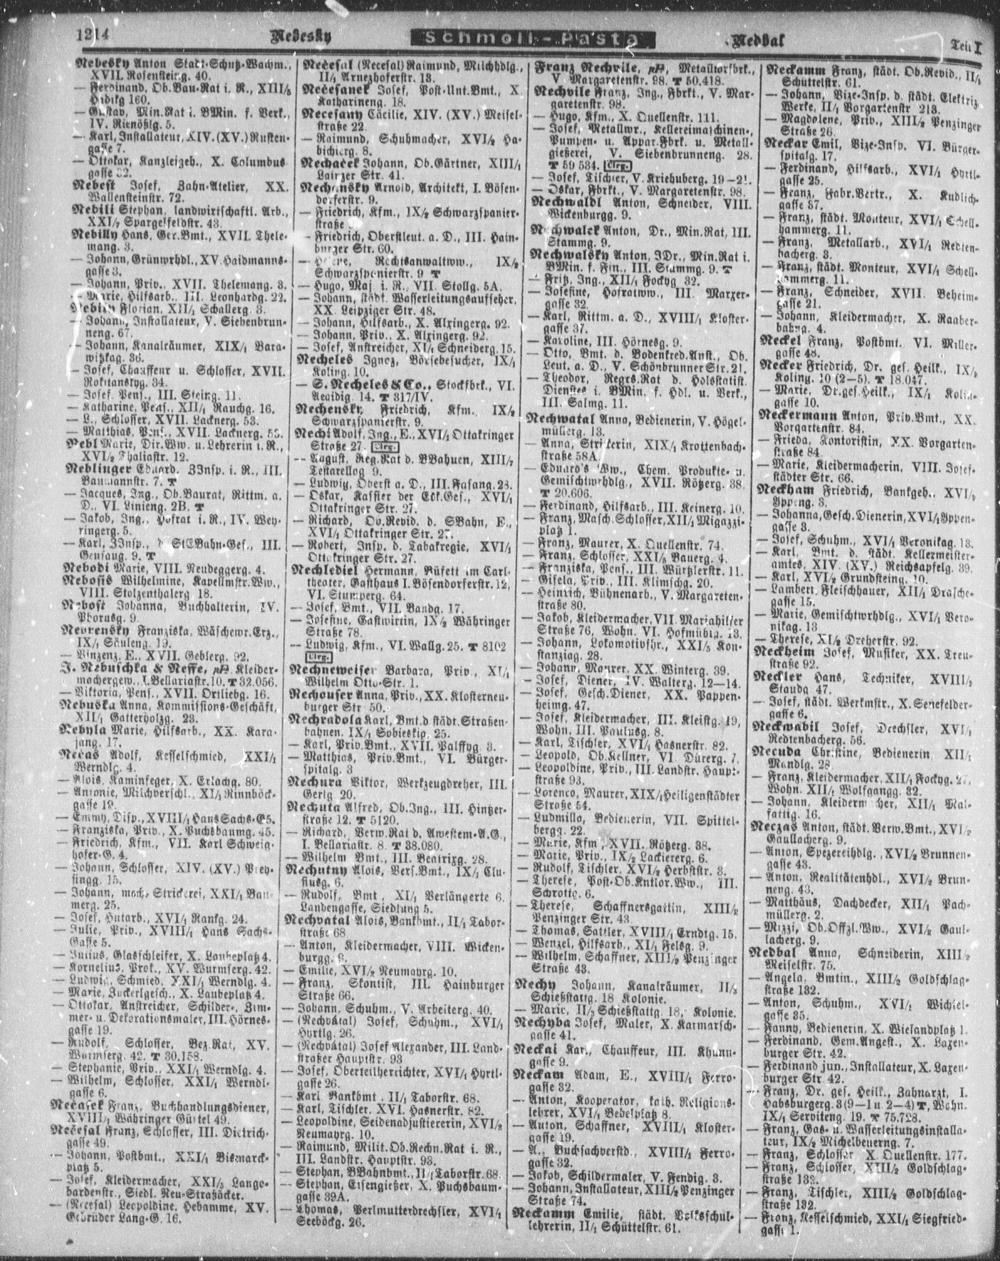 1214 Nebesky Schmoll-Pasta Nedbal Teil I
Nebesky Anton Stadt-Schutz-Wachm.,
XVII. Rosensteing. 40.
— Ferdinand, Ob. Bau-Rat i. R., XIII/5
160.
— Gustav, Min. Rat i. BMin. f. Verk.,
IV. Rienößlg. 5.
— Karl, Installateur, XIV. (XV.) Rusten-
gasse 7.
— Ottokar, Kanzleigeh., X. Columbus
gasse
Nebest Josef, Zahn-Atelier, XX.
Wallensteinstr. 72.
Nebili Stephan, landwirtschaftl. Arb.,
XXI/7 Spargelfeldstr. 43.
Nebilly Hans, Ger. Bmt., XVII. Thele-
mang. 3.
— Johann, Grünwrhdl., XV. Haidmanns-
gasse 3.
— Johann, Priv., XVII. Thelemang. 3.
— Marie, Hilfsarb., III. Leonhardg. 22.
Florian, XII/1 Schallerg. 3.
— Johann, Installateur, V. Siebenbrun-
neng. 67.
— Johann, Kanalräumer, XIX/1 Bara-
witzkag. 36.
— Josef, Chauffeur u. Schlosser, XVII.
Rokitanskyg. 34.
— Josef, Pens., III. Steing. 11.
— Katharine, Pens., XII/1 Rauchg. 16.
— L., Schlosser, XVII. Lacknerg. 53.
— Matthias, Pens., XVII. Lacknerg. 53.
Nebl Marie, Dir. Ww. u. Lehrerin i. R.,
XVI/2 Thaliastr. 12.
Neblinger Eduard, ZInsp. i. R., III.
Baumannstr. 7. T
— Jacques, Ing., Ob. Baurat, Rittm. a.
D., VI. Linieng. 2B. T
— Jakob, Ing., Hofrat i. R., IV. Wey-
ringerg. 5.
— Karl, ZInsp. d. StEBahn-Ges., III.
Gensaug. 9. T
Nebodi Marie, VIII. Neudeggerg. 4.
Nebosis Wilhelmine, Kapellmstr. Ww.,
VIII. Stolzenthalerg. 18.
Nebost Johanna, Buchhalterin, IV.
Phorusg. 9.
Nevrensky Franziska, Wäschewr. Erz.,
IX/4 Säuleng. 19.
— Vinzenz, E., XVII. Geblerg. 92.
J. Nebuschka & Neffe, Kleider-
machergew., I. Bellariastr. 10. T 32.056.
— Viktoria, Pens., XVII. Ortliebg. 16.
Nebuska Anna, Kommissions-Geschäft,
XII/1 Gatterholzg. 23.
Nebyla Marie, Hilfsarb., XX. Kara-
jang. 17.
Necas Adolf, Kesselschmied, XXI/1
Werndlg. 4.
— Alois, Kaminfeger, X. Erlachg. 80.
— Antonie, Milchverschl., XI/1 Rinnböck-
gasse 19.
— Emmy, Disp., XVIII/1 Hans Sachs-G. 5.
— Franziska, Priv., X. Puchsbaumg. 45.
— Friedrich, Kfm., VII. Karl Schweig-
hofer-G. 4.
— Johann, Schlosser, XIV. (XV.) Prey-
singg. 15.
— Johann, mech. Strickerei, XXI/1 Bau-
merg. 25.
— Josef, Hutarb., XVI/1 Rankg. 24.
— Julie, Priv., XVIII/1 Hans Sachs-
Gasse 5.
— Julius, Glasschleifer, X. Laubeplatz 4.
— Kornelius, Prok., XV. Wurmserg. 42.
— Ludwig, Schmied, XXI/1 Werndlg. 4.
— Marie, Zuckerlgesch., X. Laubeplatz 4.
— Ottokar, Anstreicher, Schilder-, Zim-
mer- u. Dekorationsmaler, III. Hörnes-
gasse 19.
— Rudolf, Schlosser, Bez. Rat, XV.
Wurmserg. 42. T 30.158.
— Stephanie, Priv., XXI/1 Werndlg. 4.
— Wilhelm, Schlosser, XXI/1 Werndl-
gasse 6.
Necasek Franz, Buchhandlungsdiener,
XVIII/1 Währinger Gürtel 49.
Necesal Franz, Schlosser, III. Dietrich-
gasse 49.
— Johann, Postbmt., XXI/1 Bismarck-
platz 5.
— Josef, Kleidermacher, XXI/1 Lango-
bardenstr., Siedl. Neu-Straßäcker.
— (Necesal) Leopoldine, Hebamme, XV.
Gebrüder Lang-G. 16.
Necesal (Necesal) Raimund, Milchhdlg.,
II/1 Arnezhoferstr. 13.
Necesanek Josef, Post-Unt. Bmt., X.
Kathareineng. 18.
Necesany Cäcilie, XIV. (XV.) Meisel-
straße 22
— Raimund, Schuhmacher, XVI/2 Ha-
bicherg. 8.
Nechacek Johann, Ob. Gärtner, XIII/1
Lainzer Str. 41.
Nechansky Arnold, Architekt, I. Bösen-
dorferstr. 9.
— Friedrich, Kfm., IX/2 Schwarzspanier-
straße
— Friedrich, Oberstleut. a. D., III. Hain-
burger Str. 60.
— Helene, Rechtsanwaltww., IX/2
Schwarzspanierstr. 9 T
— Hugo, Maj. i. R., VII. Stollg. 5A.
— Johann, städt. Wasserleitungsaufseher,
XX. Leipziger Str. 48.
— Johann, Hilfsarb., X. Alxingerg. 92.
— Johann, Priv., X. Alxingerg. 92.
— Josef, Anstreicher, XI/1 Schneiderg. 15.
Necheles Ignaz, Börsebesucher, IX/1
Koling. 10.
— S. Necheles & Co., Stockfbrk., VI.
Aegidig. 14. T 317/IV.
Nechensky Friedrich, Kfm., IX/2
Schwarzspanierstr. 9.
Nechi Adolf, Ing., E., XVI/1 Ottakringer
Straße 27. Clrg.
— August, Reg. Rat d. BBahnen, XIII/2
Testarellog. 9.
— Ludwig, Oberst a. D., III. Fasang. 23.
— Oskar, Kassier der Eck. Ges., XVI/1
Ottakringer Str. 27.
— Richard, Ob. Revid. d. SBahn, E.,
XVI/1 Ottakringer Str. 27.
— Robert, Insp. d. Tabakregie, XVI/1
Ottakringer Str. 27.
Nechledier Hermann, Büfett im Carl-
theater, Gasthaus I. Bösendorferstr. 12,
VI. Stumperg. 64.
— Josef, Bmt., VII. Bandg. 17.
— Josefine, Gastwirtin, IX/2 Währinger
Straße 78.
— Ludwig, Kfm., VI. Wallg. 25. T 8102
Clrg.
Nechneweiser Barbara, Priv., XI/1
Wilhelm Otto-Str. 1.
Nechouser Anna, Priv., XX. Klosterneu-
burger Str. 50.
Nechradola Karl, Bmt. d. städt. Straßen-
bahnen, IX/4 Sobieskig. 25.
— Karl, Priv. Bmt., XVII. Palffyg. 3.
— Matthias, Priv. Bmt., VI. Bürger-
spitalg. 3
Nechura Viktor, Werkzeugdreher, III.
Gerlg. 20.
Nechuta Alfred, Ob. Ing., III. Hintzer-
straße 12. T 5120.
— Richard, Verw. Rat d. Awestem-A. G.,
I. Bellariastr. 8. T 38.080.
— Wilhelm, Bmt., III. Beatrixg. 28.
Nechutny Alois, Vers. Bmt., IX/4 Clu-
siusg. 6.
— Rudolf, Bmt., XI/1 Verlängerte 6.
Landengasse, Siedlung 5.
Nechvatal Alois, Bankbmt., II/1 Tabor-
straße 68
— Anton, Kleidermacher, VIII. Wicken-
burgg. 6.
— Emilie, XVI/2 Neumayrg. 10.
— Franz, Skontist, III. Hainburger
Straße 66.
— Johann, Schuhm., V. Arbeiterg. 40.
— (Nechvatal) Josef, Schuhm., XVI/1
Hyrtlg. 26.
— (Nechvatal) Josef Alexander, III. Land-
straßer Hauptstr. 93
— Josef, Oberteilherrichter, XVI/1 Hyrtl-
gasse 26.
— Karl, Bankbmt., II/1 Taborstr. 68.
— Karl, Tischler, XVI. Hasnerstr. 82.
— Leopoldine, Seidenadjustiererin, XVI/2
Neumayrg. 10.
— Raimund, Milit. Ob. Rechn. Rat i. R.,
III. Landstr. Hauptstr. 93.
— Stephan, BBahnbmt., II/1 Taborstr. 68.
— Stephan, Eisengießer, X. Puchsbaum-
gasse 39A.
— Thomas, Perlmutterdrechsler, XVI/1
Seeböckg. 26.
Franz Nechvile, Metallwfbrk.,
V. Margaretenstr. 98. T 50.418.
Nechvile Franz, Ing., Fbrkt., V. Mar-
garetenstr. 98.
— Hugo, Kfm., X. Quellenstr. 111.
— Josef, Metallwr., Kellereimaschinen-,
Pumpen- u. Appar. Fbrk. u. Metall-
gießerei, V. Siebenbrunneng. 28.
T 59 534. Clrg.
— Josef, Tischler, V. Kriehuberg. 19–21.
— Oskar, Fbrkt., V. Margaretenstr. 98.
Nechwaldl Anton, Schneider, VIII.
Wickenburgg. 9.
Nechwalek Anton, Dr., Min. Rat, III.
Stammg. 9.
Nechwalsky Anton, JDr., Min. Rat i.
BMin. f. Fin., III. Stammg. 9. T
— Fritz, Ing., XII/1 Fockyg. 32.
— Josefine, Hofratsww., III. Marxer-
gasse 32.
— Karl, Rittm. a. D., XVIII/1 Kloster-
gasse 37.
— Karoline, III. Hörnesg. 9.
— Otto, Bmt. d. Bodenkred. Anst., Ob.
Leut. a. D., V. Schönbrunner Str. 21.
— Theodor, Regrs. Rat d. Holzstatist.
Dienstes i. BMin. f. Hdl. u. Verk.,
III. Salmg. 11.
Nechwatal Anna, Bedienerin, V. Högel-
müllerg. 13.
— Anna, Strickerin, XIX/1 Krottenbach-
straße 58A.
— Eduard's Ww., Chem. Produkte- u.
Gemischtwrhdlg., XVII. Rötzerg. 38.
T 20.606.
— Ferdinand, Hilfsarb., III. Keinerg. 10.
— Franz, Masch. Schlosser, XII/4 Migazzi-
platz 1.
— Franz, Maurer, X. Quellenstr. 74.
— Franz, Schlosser, XXI/5 Bauerg. 4.
— Franziska, Pens., III. Würtzlerstr. 11.
— Gisela, Priv., III. Klimschg. 20.
— Heinrich, Bühnenarb., V. Margareten-
straße 80.
— Jakob, Kleidermacher, VII. Mariahilfer
Straße 76, Wohn. VI. Hofmühlg. 13.
— Johann, Lokomotivfhr., XXI/5 Kon-
stanziag. 28.
— Johann, Maurer, XX. Winterg. 39.
— Josef, Diener, IV. Walterg. 12–14.
— Josef, Gesch. Diener, XX. Pappen-
heimg. 47.
— Josef, Kleidermacher, III. Kleistg. 19,
Wohn. III. Paulusg. 8.
— Karl, Tischler, XVI/1 Hasnerstr. 82.
— Leopold, Ob. Kellner, VI. Dürerg. 7.
— Leopoldine, Priv., III. Landstr. Haupt-
straße 93.
— Lorenzo, Maurer, XIX/1 Heiligenstädter
Straße 54.
— Ludmilla, Bedienerin, VII. Spittel-
bergg. 22.
— Marie, Kfm., XVII. Rötzerg. 38.
— Marie, Priv., IX/2 Lackiererg. 6.
— Rudolf, Tischler, XVI/2 Herbststr. 3.
— Therese, Post-Ob. Kntlor. Ww., III.
Schrottg. 6.
— Therese, Schaffnersgattin, XIII/2
Penzinger Str. 43.
— Thomas, Sattler, XVIII/1 Erndtg. 15.
— Wenzel, Hilfsarb., XI/1 Felsg. 9.
— Wilhelm, Schaffner, XIII/2 Penzinger
Straße 43.
Nechy Johann, Kanalräumer, II/2
Schießstattg. 18 Kolonie.
— Marie, II/2 Schießstattg. 18, Kolonie.
Nechyba Josef, Maler, X. Karmarsch-
gasse 41.
Neckai Karl, Chauffeur, III. Khunn-
gasse 9.
Neckam Adam, E., XVIII/1 Ferro-
gasse 32.
— Anton, Kooperator, kath. Religions-
lehrer, XVI/1 Bedelplatz 8.
— Anton, Schaffner, XVIII/1 Kloster-
gasse 19.
— A., Buchsachverstd., XVIII/1 Ferro-
gasse 32.
— Jakob, Schildermaler, V. Fendig. 3.
— Johann, Installateur, XIII/2 Penzinger
Straße 74.
Neckamm Emilie, städt. Volksschul-
lehrerin, II/1 Schüttelstr. 61.
Neckamm Franz, städt. Ob. Revid., II/1
Schüttelstr. 61.
— Johann, Vize-Insp. d. städt. Elektriz.
Werke, II/1 Vorgartenstr. 213.
— Magdalene, Priv., XIII/2 Penzinger
Straße 26.
Neckar Emil, Vize-Insp. VI. Bürger-
spitalg. 17.
— Ferdinand, Hilfsarb., XVI/1 Hyrtl-
gasse 25.
— Franz, Fabr. Vertr., X. Kudlich-
gasse 37.
— Franz, städt. Monteur, XVI/1 Schell-
hammerg. 11.
— Franz, Metallarb., XVI/1 Redten-
bacherg. 3.
— Franz, städt. Monteur, XVI/1 Schell-
hammerg. 11.
— Franz, Schneider, XVII. Beheim-
gasse 21.
— Johann, Kleidermacher, X. Raaber-
bahng. 4.
Neckel Franz, Postbmt. VI. Miller-
gasse 48.
Necker Friedrich, Dr. ges. Heilk., IX/1
Koling. 10 (2–5). T 18.047.
— Marie, Dr. ges. Heilk., IX/1 Kolin-
gasse 10.
Neckermann Anton, Priv. Bmt., XX.
Vorgartenstr. 84.
— Frieda, Kontoristin, XX. Vorgarten-
straße 84.
— Marie, Kleidermacherin, VIII. Josef-
städter Str. 66.
Neckham Friedrich, Bankgeh., XVI/1
Yppeng. 3.
— Johanna, Gesch. Dienerin, XVI/1 Yppen-
gasse 3.
— Josef, Schuhm., XVI/1 Veronikag. 13.
— Karl, Bmt. d. städt. Kellermeister-
amtes, XIV. (XV.) Reichsapfelg. 39.
— Karl, XVI/2 Grundsteing. 10.
— Lambert, Fleischhauer, XII/1 Drasche-
gasse 15.
— Marie, Gemischtwrhdlg., XVI/1 Vero-
nikag. 13
— Therese, XI/2 Dreherstr. 92.
Neckheim Josef, Musiker, XX. Treu-
straße 92.
Neckler Hans, Techniker, XVIII/3
Staudg. 47
— Josef, städt. Werkmstr., X. Senefelder-
gasse 6.
Neckwabil Josef, Drechsler, XVI/1
Redtenbacherg. 56.
Necuda Christine, Bedienerin, XII/1
Mandlg. 28.
— Franz, Kleidermacher, XII/1 Fockyg.
Wohn. XII/1 Wolfgangg. 32.
— Johann, Kleidermacher, XII/1 Mal-
fattig. 16.
Neczas Anton, städt. Verw. Bmt., XVI/2
Gaullacherg. 9.
— Anton, Spezereihdlg., XVI/2 Brunnen-
gasse 43.
— Anton, Realitätenhdl., XVI/2 Brun-
neng. 43.
— Matthäus, Dachdecker, XII/1 Pach-
müllerg. 2.
— Mizzi, Ob. Offzl. Ww., XVI/2 Gaul-
lacherg. 9.
Nedbal Anna, Schneiderin, XIII/2
Meiselstr. 75.
— Angela, Bmtin., XIII/2 Goldschlag-
straße 132.
— Anton, Schuhm., XVI/1 Wichtel-
gasse 35.
— Fanny, Bedienerin, X. Wielandplatz 1.
— Ferdinand, Gem. Angest., X. Laxen-
burger Str. 42.
— Ferdinand jun., Installateur, X. Laxen-
burger Str. 42.
— Franz, Dr. ges. Heilk., Zahnarzt, I.
Habsburgerg. 3 (9–1 u. 2–4) T, Wohn.
IX/4 Serviteng. 19. T 75.728.
— Franz, Gas- u. Wasserleitungsinstalla-
teur, IX/4 Michelbeuerng. 7.
— Franz, Schlosser, X. Quellenstr. 177.
— Franz, Schlosser, XIII/2 Goldschlag-
straße 132.
— Franz, Tischler, XIII/2 Goldschlag-
straße 132.
— Franz, Kesselschmied, XXI/1 Siegfried-
gasse 1.